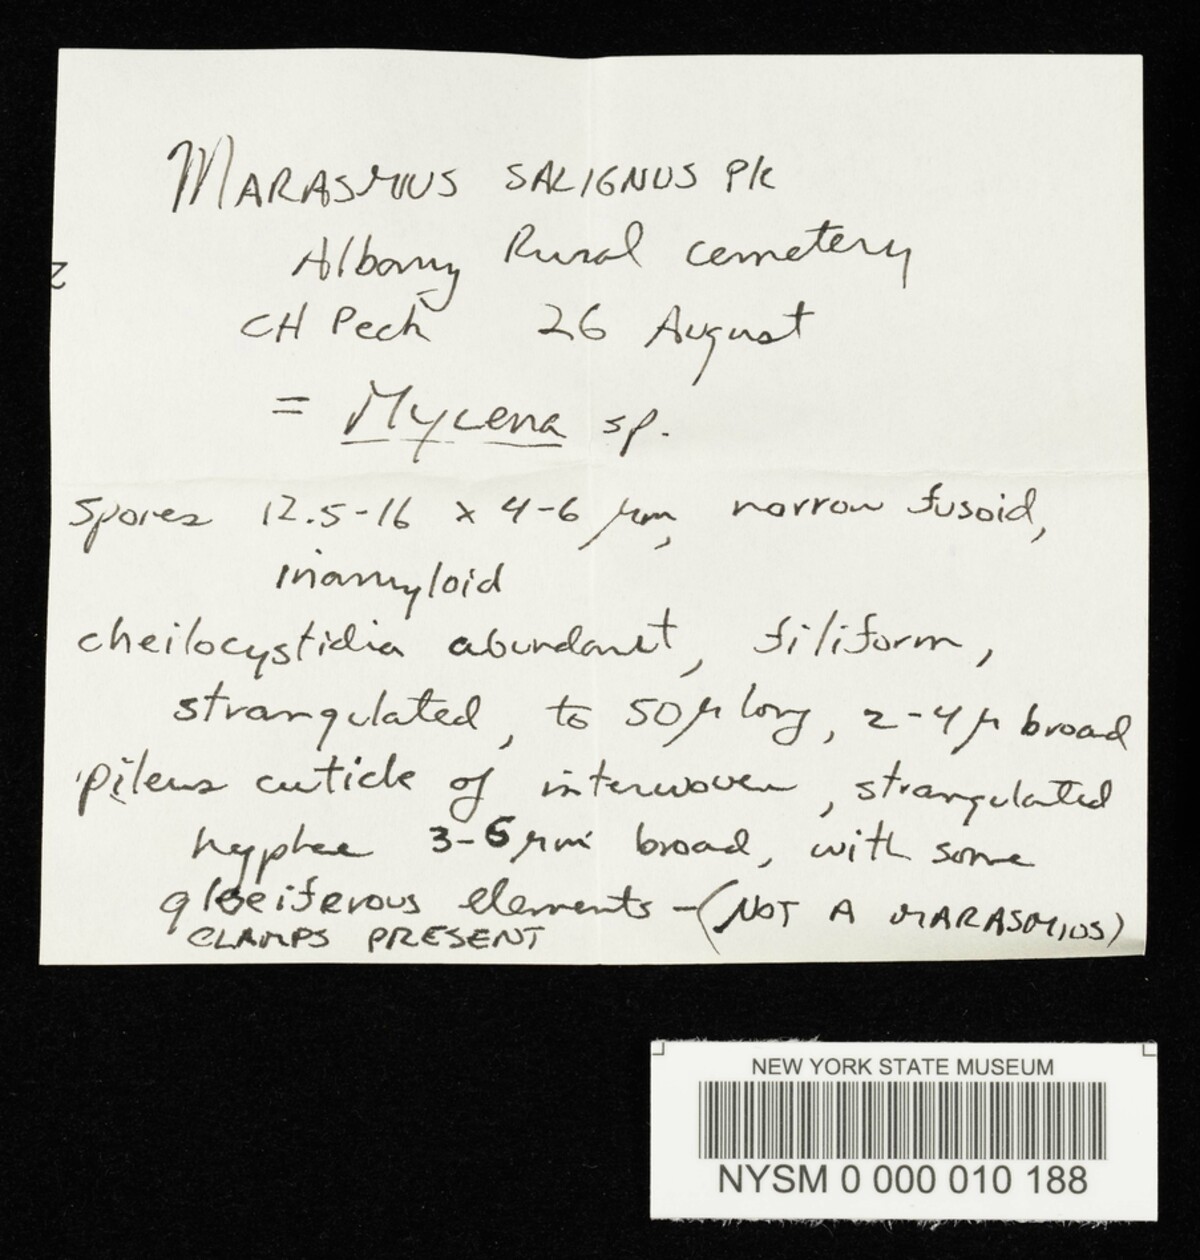 MARASMIUS SALIGNUS PK
Albany Rural cemetery
CH Peck 26 August
= Mycena sp.
spores 12.5-16 x 4-6 μm, narrow fusoid,
inamyloid
cheilocystidia abundant, filiform,
strangulated, to 50 μ long, 2-4 μ broad
pileus cuticle of interwoven, strangulated
hyphae 3-6 μm broad, with some
gloeiferous elements - (NOT A MARASMIUS)
CLAMPS PRESENT
NEW YORK STATE MUSEUM
NYSM 0 000 010 188